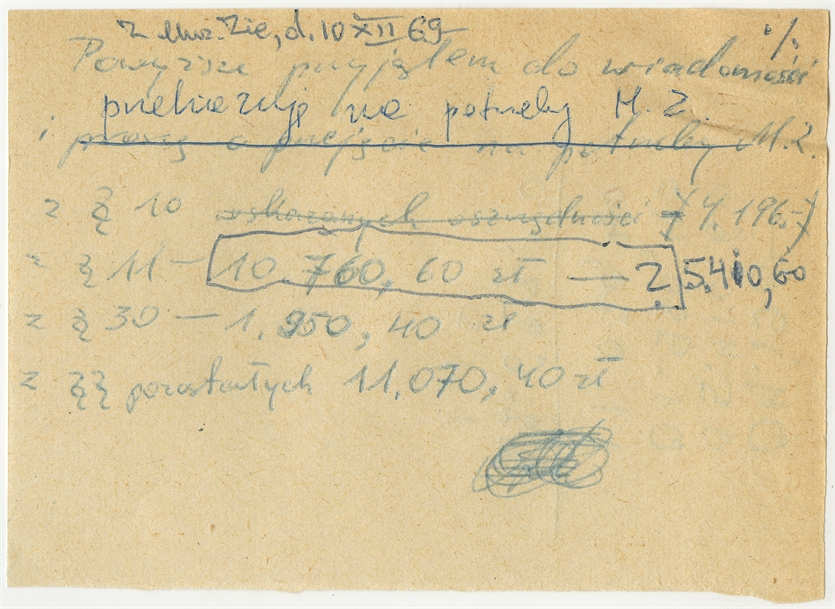 d. 10 XII 69
./.
Powyższe przyjąłem do wiadomości
przekazuję na potrzeby M. Z.
i proszę o przejęcie na potrzeby M. Z.
z § 10 wskazanych oszczędności 4.196.-
z § 11 — 10.760,60 zł — 2 5.410,60
z § 30 — 1.950,40 zł
z §§ pozostałych 11.070,40 zł